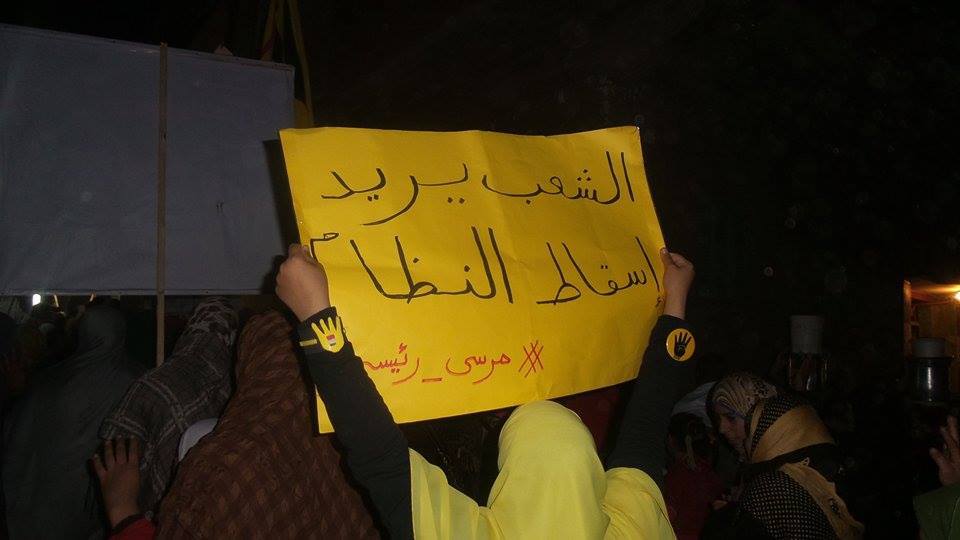 الشعب يريد
إسقاط النظام
#مرسى_رئيسى